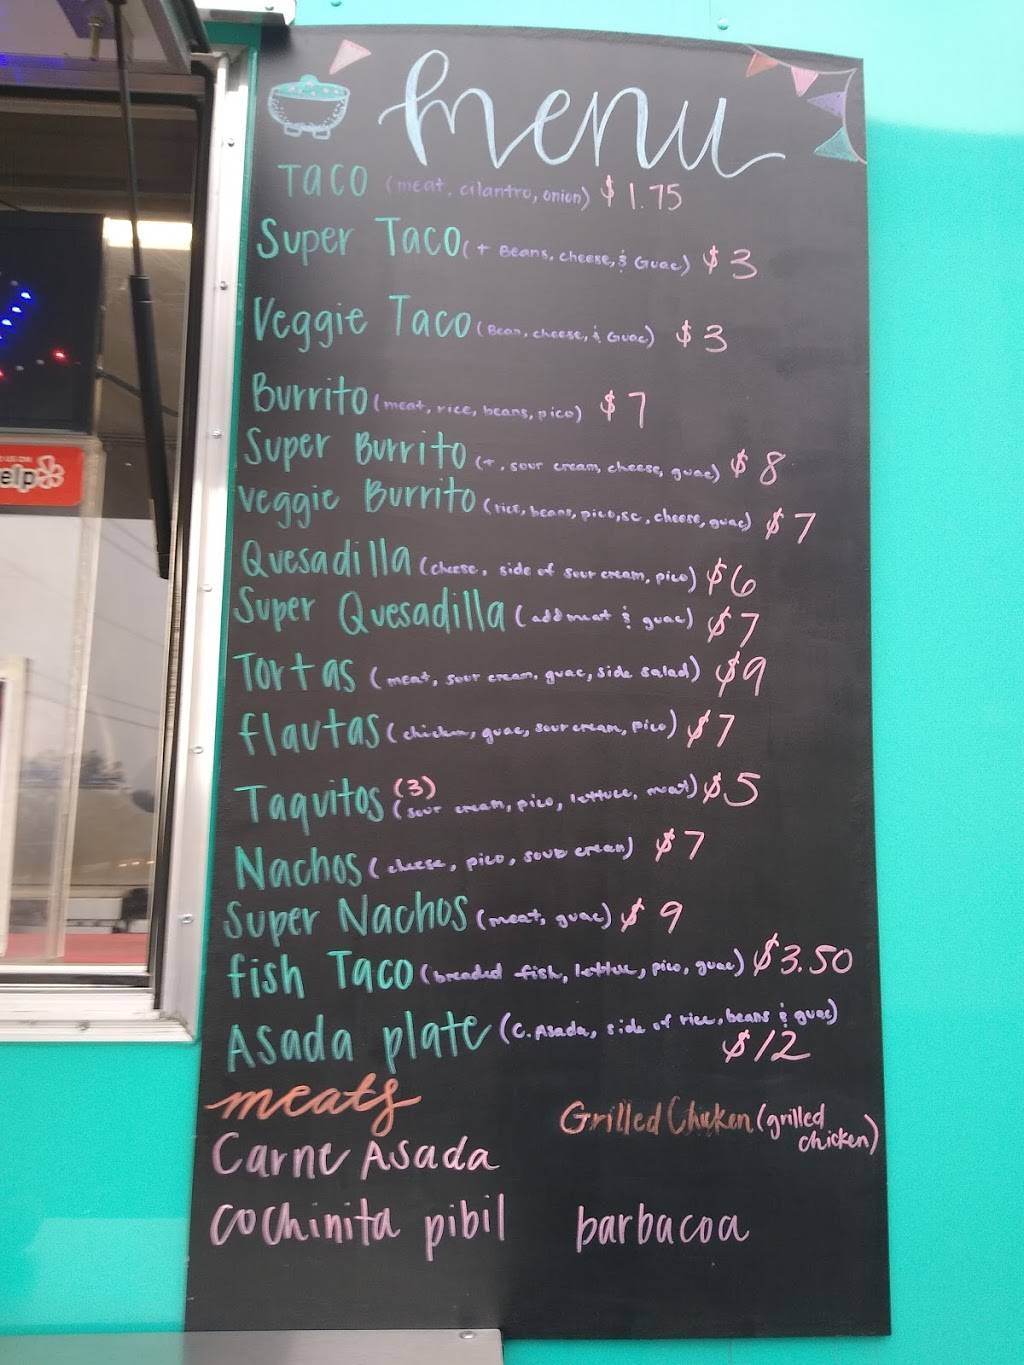 menu
Taco (meat, cilantro, onion) $1.75
Super Taco (+ Beans, cheese, & Guac) $3
Veggie Taco (Bean, cheese, & Guac) $3
Burrito (meat, rice, beans, pico) $7
Super Burrito (+, sour cream, cheese, guac) $8
Veggie Burrito (rice, beans, pico, sc, cheese, guac) $7
Quesadilla (cheese, side of sour cream, pico) $6
Super Quesadilla (add meat & guac) $7
Tortas (meat, sour cream, guac, side salad) $9
flautas (chicken, guac, sour cream, pico) $7
Taquitos (3) (sour cream, pico, lettuce, meat) $5
Nachos (cheese, pico, sour cream) $7
Super Nachos (meat, guac) $9
fish Taco (breaded fish, lettuce, pico, guac) $3.50
Asada plate (C. Asada, side of rice, beans & guac)
$12
meats
Grilled Chicken (grilled
chicken)
Carne Asada
Cochinita pibil barbacoa
elp